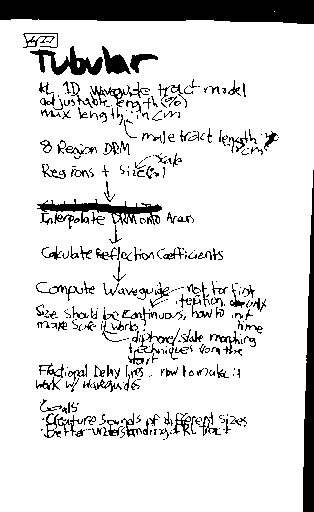 Tubular
KL 1D waveguide tract model
adjustable length (%)
max length: in cm
male tract length
8 Region DRM
scale
Regions + size(%)
Interpolate DRM onto Areas
Calculate Reflection Coefficients
Compute Waveguide
not for first
iteration, only
Size should be continuous, how to
init
make sure it works?
time
diphone/state morphing
techniques from the
start
Fractional Delay lines. how to make it
work w/ waveguides
Goals:
·Creature sounds of different sizes
·better understanding of KL Tract